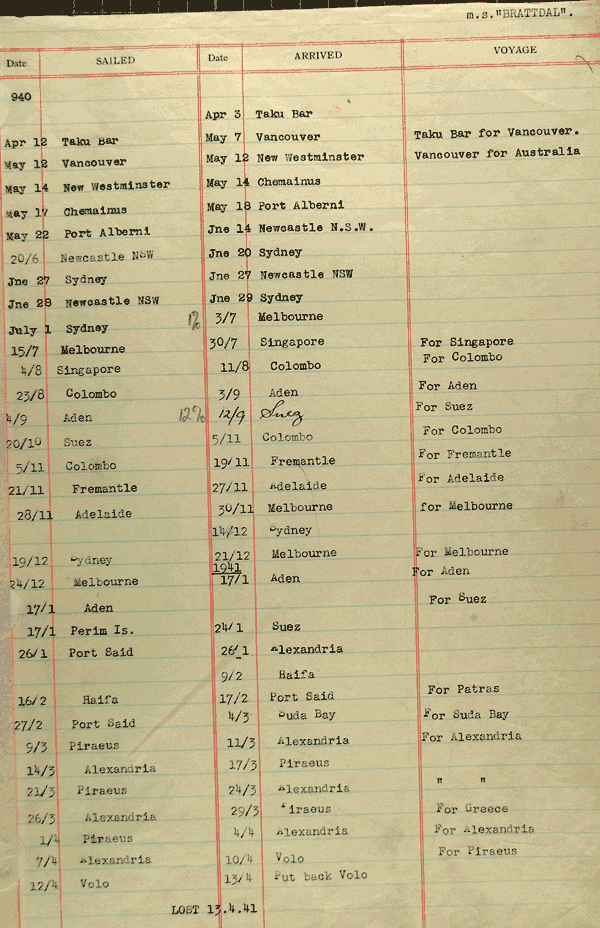 m.s."BRATTDAL".
Date SAILED Date ARRIVED VOYAGE
940
Apr 3 Taku Bar
Apr 12 Taku Bar May 7 Vancouver Taku Bar for Vancouver.
May 12 Vancouver May 12 New Westminster Vancouver for Australia
May 14 New Westminster May 14 Chemainus
May 17 Chemainus May 18 Port Alberni
May 22 Port Alberni Jne 14 Newcastle N.S.W.
20/6 Newcastle NSW Jne 20 Sydney
Jne 27 Sydney Jne 27 Newcastle NSW
Jne 28 Newcastle NSW Jne 29 Sydney
July 1 Sydney 1% 3/7 Melbourne
15/7 Melbourne 30/7 Singapore For Singapore
4/8 Singapore 11/8 Colombo For Colombo
23/8 Colombo 3/9 Aden For Aden
4/9 Aden 12% 12/9 Suez For Suez
20/10 Suez 5/11 Colombo For Colombo
5/11 Colombo 19/11 Fremantle For Fremantle
21/11 Fremantle 27/11 Adelaide For Adelaide
28/11 Adelaide 30/11 Melbourne for Melbourne
14/12 Sydney
19/12 Sydney 21/12 Melbourne For Melbourne
1941
24/12 Melbourne 17/1 Aden For Aden
17/1 Aden For Suez
17/1 Perim Is. 24/1 Suez
26/1 Port Said 26/1 Alexandria
9/2 Haifa
16/2 Haifa 17/2 Port Said For Patras
27/2 Port Said 4/3 Suda Bay For Suda Bay
9/3 Piraeus 11/3 Alexandria For Alexandria
14/3 Alexandria 17/3 Piraeus
21/3 Piraeus 24/3 Alexandria " "
26/3 Alexandria 29/3 Piraeus For Greece
1/4 Piraeus 4/4 Alexandria For Alexandria
7/4 Alexandria 10/4 Volo For Piraeus
12/4 Volo 13/4 Put back Volo
LOST 13.4.41